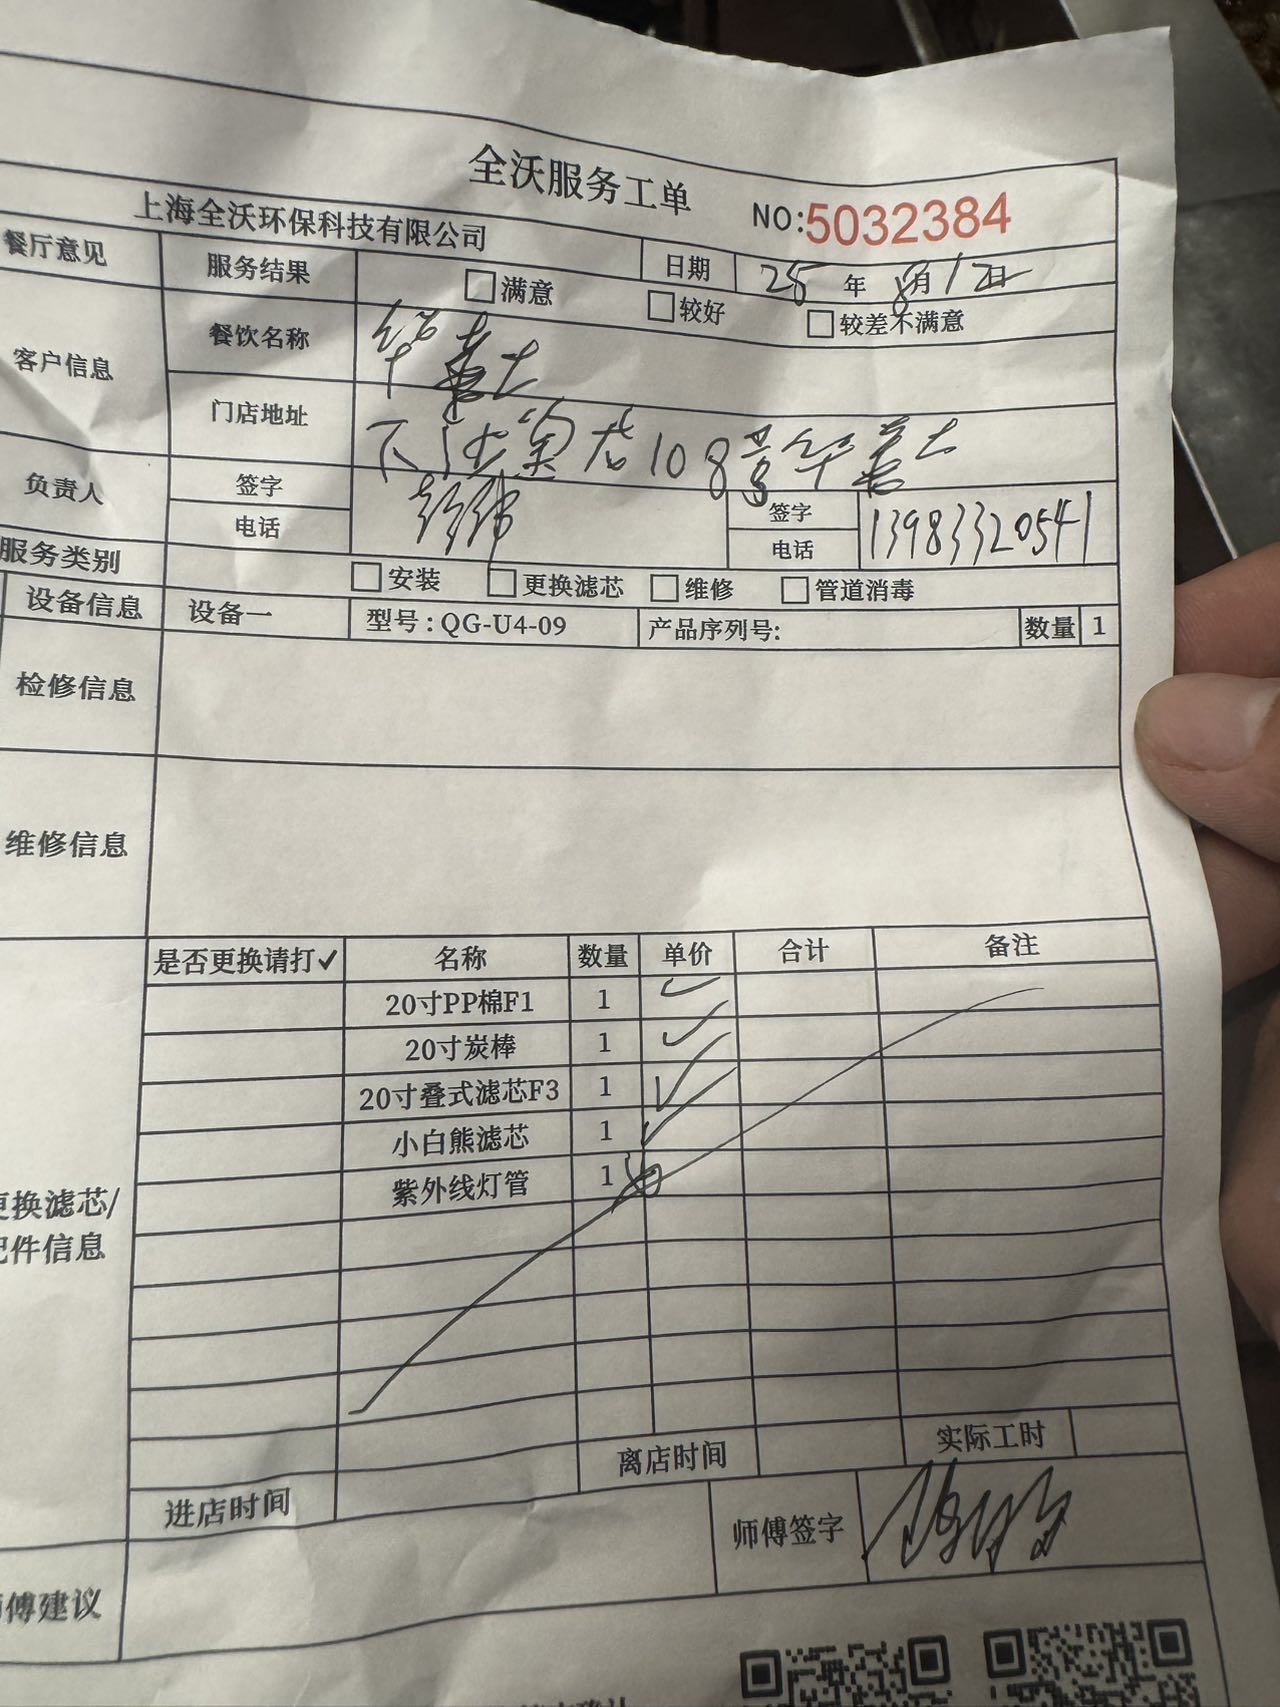 全沃服务工单
NO:5032384
上海全沃环保科技有限公司
日期 25年8月12日
餐厅意见 服务结果 满意 较好 较差不满意
客户信息 餐饮名称 华莱士
门店地址 108号华莱士
负责人 签字 签字
电话 电话 13983320541
服务类别 安装 更换滤芯 维修 管道消毒
设备信息 设备一 型号:QG-U4-09 产品序列号: 数量 1
检修信息
维修信息
是否更换请打✓ 名称 数量 单价 合计 备注
20寸PP棉F1 1 ✓
20寸炭棒 1 ✓
20寸叠式滤芯F3 1 ✓
小白熊滤芯 1 ✓
紫外线灯管 1
更换滤芯/
配件信息
进店时间 离店时间 实际工时
师傅签字
师傅建议